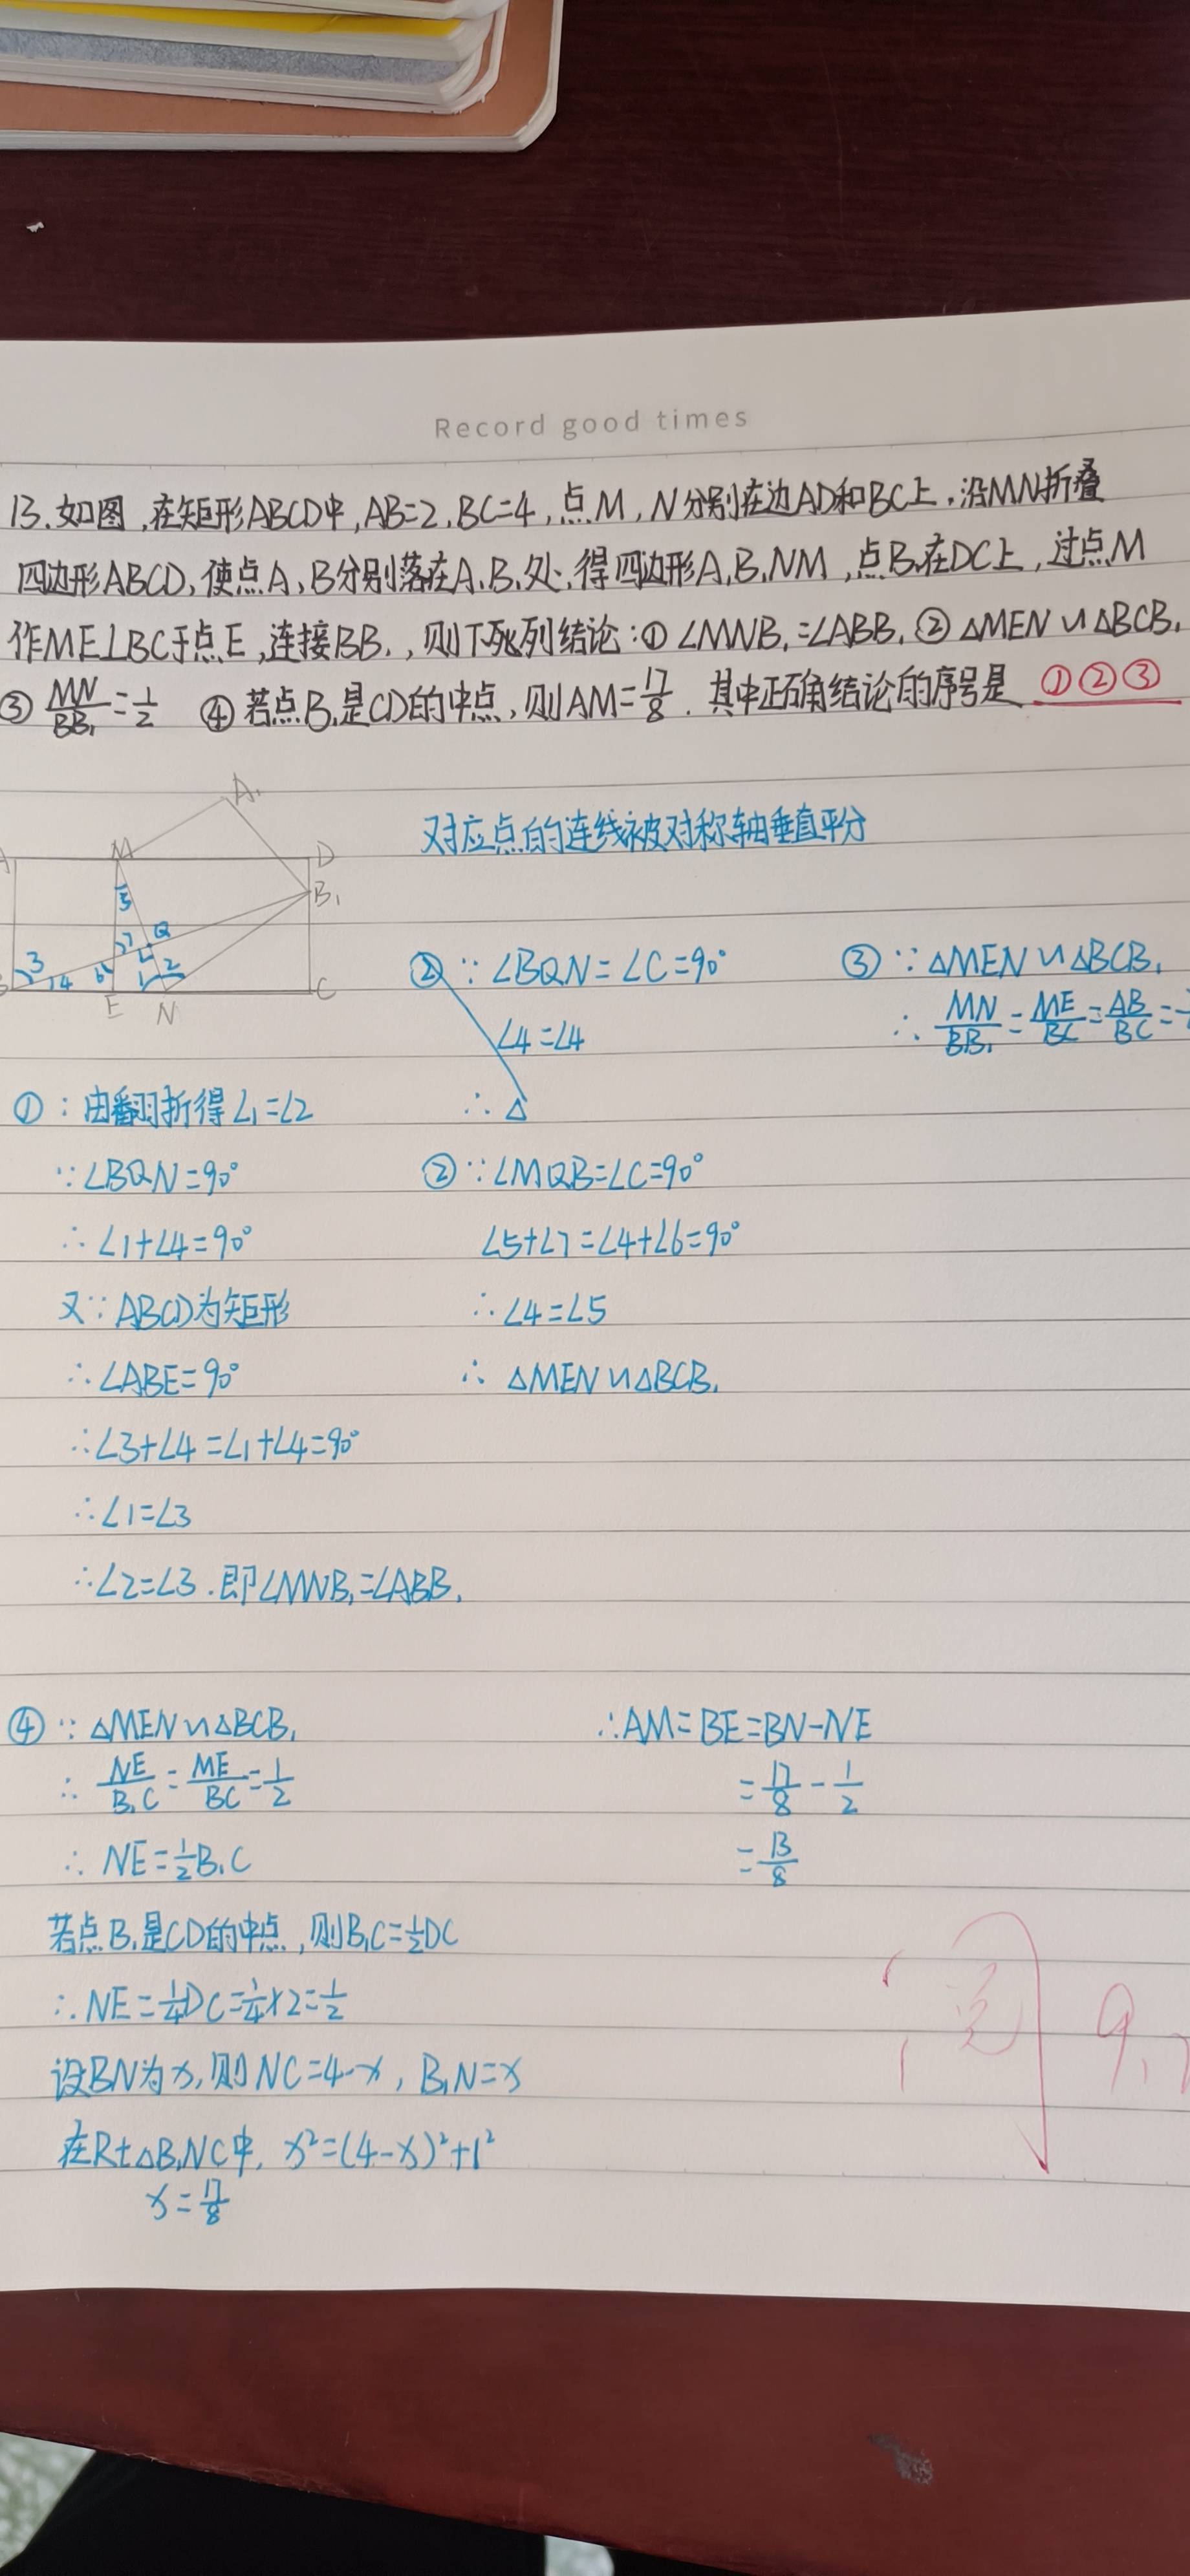 Record good times
13.如图,在矩形ABCD中,AB=2,BC=4,点M,N分别在边AD和BC上,沿MN折叠
四边形ABCD,使点A,B分别落在A₁B₁处,得四边形A₁B₁NM,点B₁在DC上,过点M
作ME⊥BC于点E,连接BB₁,则下列结论:①∠MNB₁=∠ABB₁②△MEN∽△BCB₁
③MN/BB₁=1/2 ④若点B₁是CD的中点,则AM=17/8.其中正确结论的序号是 ①②③
A₁
M D
B₁
5
Q
3 7
4 6 1 2
E N C
对应点的连线被对称轴垂直平分
② ∵∠BQN=∠C=90°
∠4=∠4
∴△
③ ∵△MEN∽△BCB₁
∴MN/BB₁=ME/BC=AB/BC=
①:由翻折得∠1=∠2
∵∠BQN=90°
∴∠1+∠4=90°
又∵ABCD为矩形
∴∠ABE=90°
∴∠3+∠4=∠1+∠4=90°
∴∠1=∠3
∴∠2=∠3.即∠MNB₁=∠ABB₁
②∵∠MQB=∠C=90°
∠5+∠7=∠4+∠6=90°
∴∠4=∠5
∴△MEN∽△BCB₁
④∵△MEN∽△BCB₁
∴NE/B₁C=ME/BC=1/2
∴NE=1/2B₁C
若点B₁是CD的中点,则B₁C=1/2DC
∴NE=1/4DC=1/4×2=1/2
设BN为x,则NC=4-x,B₁N=x
在Rt△B₁NC中,x²=(4-x)²+1²
x=17/8
∴AM=BE=BN-NE
=17/8-1/2
=13/8